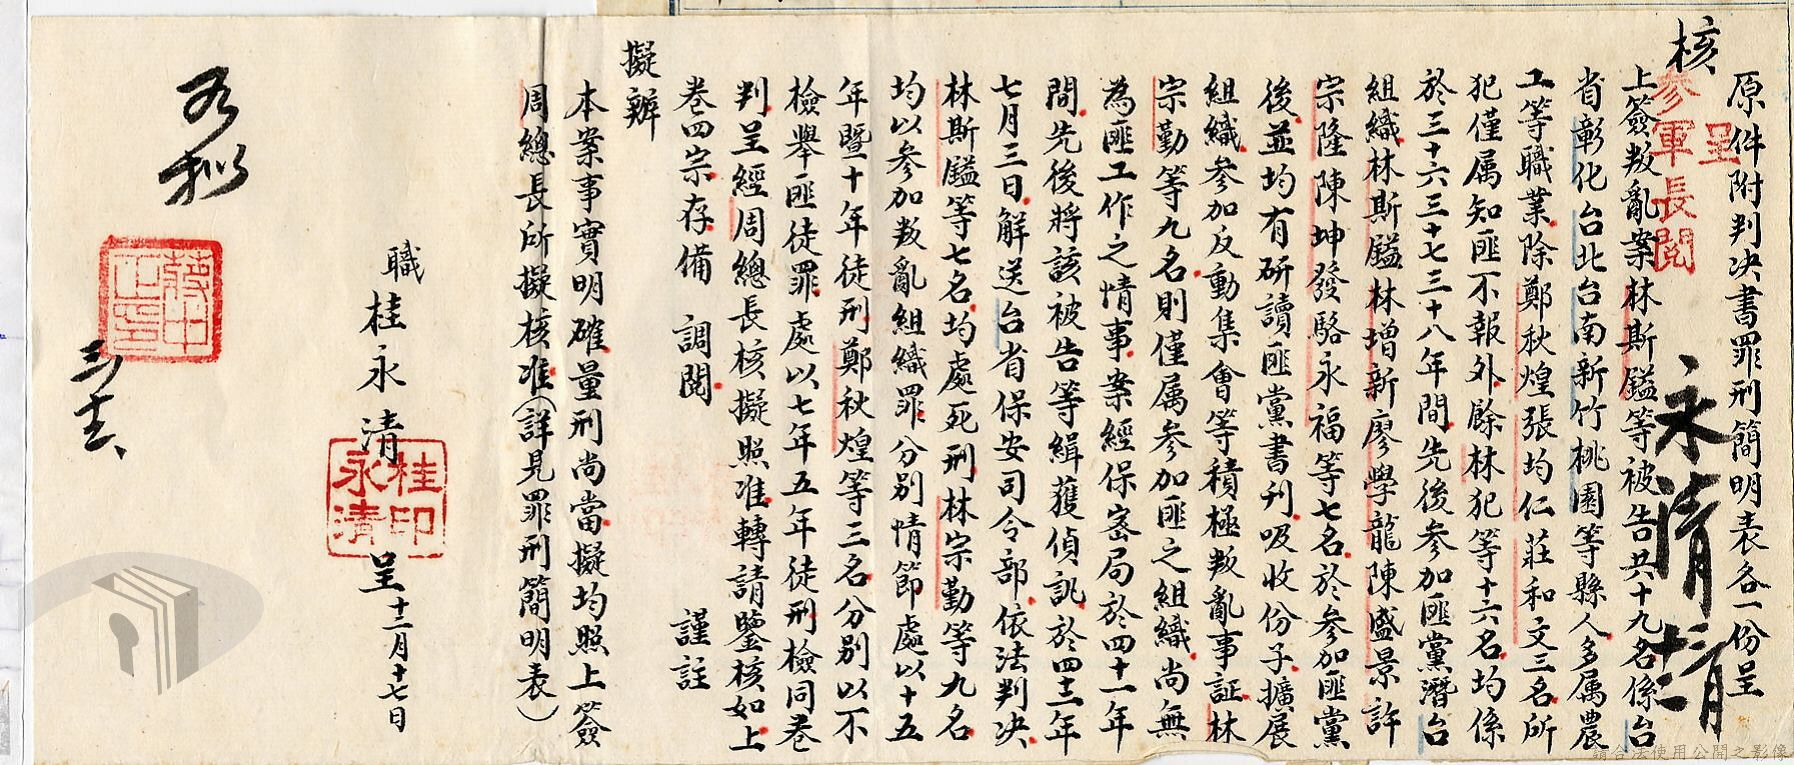 核
呈
參軍長閱
原件附判决書罪刑簡明表各一份呈
永清
上簽叛亂案林斯鎰等被告共十九名係台
省彰化台北台南新竹桃園等縣人多属農
工等職業除鄭秋煌張均仁莊和文三名所
犯僅属知匪不報外餘林犯等十六名均係
於三十六三十七三十八年間先後參加匪黨潛台
組織林斯鎰林增新廖學龍陳盛景許
宗隆陳坤發駱永福等七名於參加匪黨
後並均有研讀匪黨書刊吸收份子擴展
組織參加反動集會等積極叛亂事証林
宗勤等九名則僅属參加匪之組織尚無
為匪工作之情事案經保密局於四十一年
間先後將該被告等緝獲偵訊於四十二年
七月三日解送台省保安司令部依法判决
林斯鎰等七名均處死刑林宗勤等九名
均以參加叛亂組織罪分别情節處以十五
年暨十年徒刑鄭秋煌等三名分别以不
檢舉匪徒罪處以七年五年徒刑檢同卷
判呈經周總長核擬照准轉請鑒核如上
卷四宗存備調閱　謹註
擬辦
本案事實明確量刑尚當擬均照上簽
周總長所擬核准（詳見罪刑簡明表）
職桂永清呈十二月十七日
桂永清印
如擬
蔣中正印